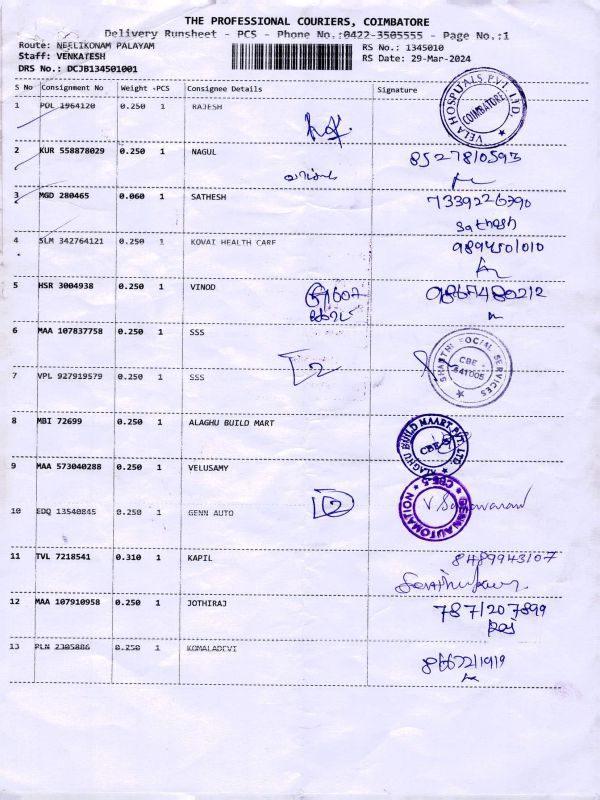 THE PROFESSIONAL COURIERS, COIMBATORE
Delivery Runsheet - PCS - Phone No.:0422-3505555 - Page No.:1
Route: NEELIKONAM PALAYAM
RS No.: 1345010
Staff: VENKATESH
RS Date: 29-Mar-2024
DRS No.: DCJB134501001
S No Consignment No Weight -PCS Consignee Details Signature
1 POL 1964120 0.250 1 RAJESH
VELA HOSPITALS PVT. LTD. COIMBATORE
2 KUR 558878029 0.250 1 NAGUL 8527810593
3 MGD 280465 0.060 1 SATHESH 7339226390
Sathesh
4 SLM 342764121 0.250 1 KOVAI HEALTH CARE 9894501010
5 HSR 3004938 0.250 1 VINOD
6 MAA 107837758 0.250 1 SSS
SHANTHI SOCIAL SERVICES CBE 641005
7 VPL 927919579 0.250 1 SSS
8 MBI 72699 0.250 1 ALAGHU BUILD MART
ALAGHU BUILD MAART PVT. LTD. CBE-5
9 MAA 573040288 0.250 1 VELUSAMY
10 EDQ 13540845 0.250 1 GENN AUTO
GENN AUTOMATION CBE-5
11 TVL 7218541 0.310 1 KAPIL 8489943107
12 MAA 107910958 0.250 1 JOTHIRAJ 7871207899
Raj
13 PLN 2305886 0.250 1 KOMALADEVI